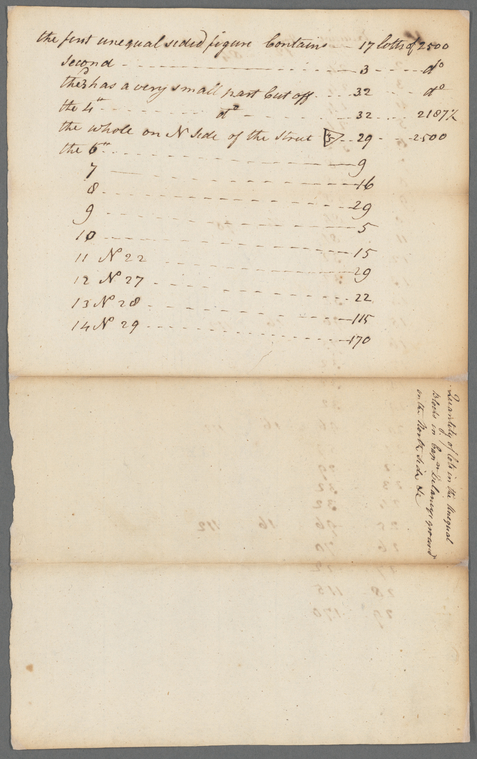 the first unequal sided figure Contains - - 17 lotts of 2500
Second - - - - - - 3 - - - do
the 3d has a very small part Cut off - - 32 - - - do
the 4th - - - - do - - - 32 - - - 2187½
the whole on N Side of the Street 5 - 29 - - 2500
the 6th - - - - - - 9
7 - - - - - - 16
8 - - - - - - 29
9 - - - - - - 5
10 - - - - - - 15
11 No 22 - - - - - - 29
12 No 27 - - - - - - 22
13 No 28 - - - - - - 115
14 No 29 - - - - - - 170
Quantity of lots in the Unequal
blocks in Capn Delanceys ground
on the North Side &c